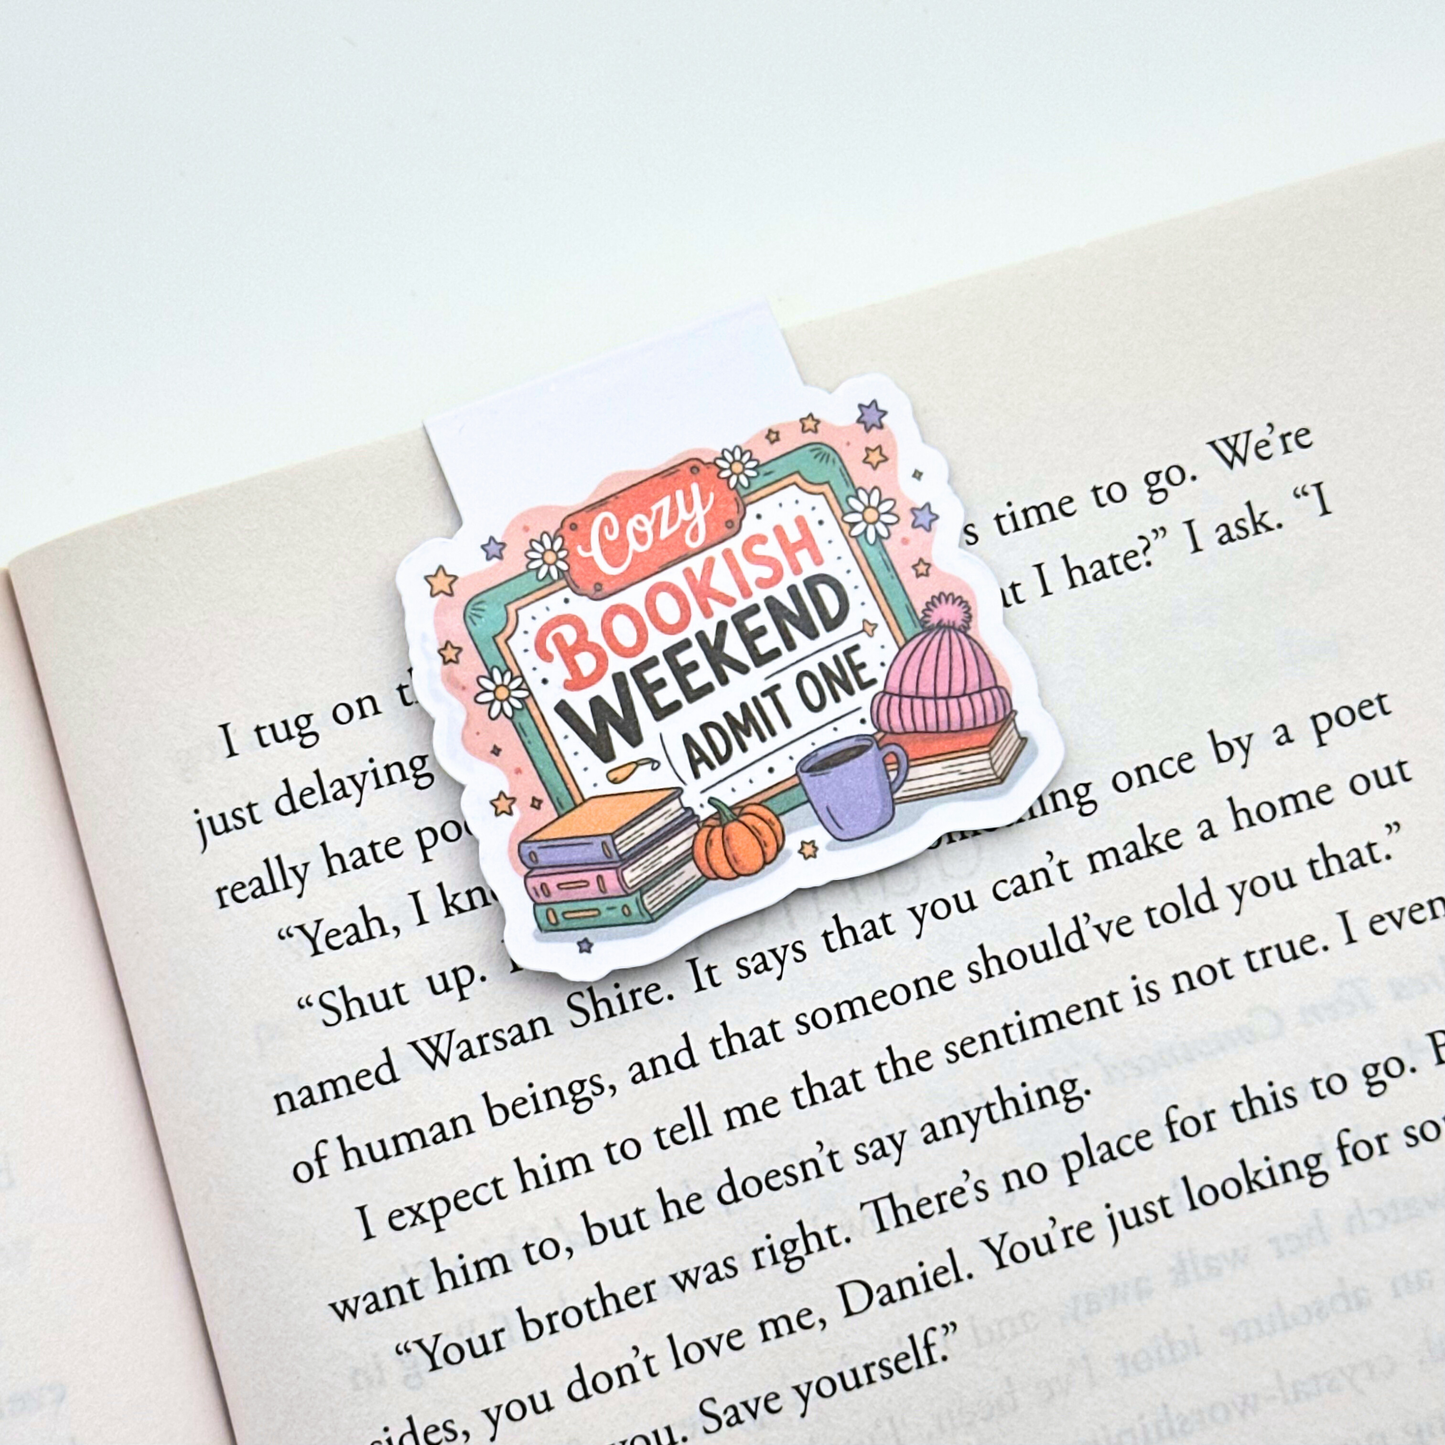 Cozy
BOOKISH
WEEKEND
ADMIT ONE
s time to go. We’re
at I hate?” I ask. “I
I tug on
just delaying
really hate
“Yeah, I
“Shut up. once by a poet
named Warsan Shire. It says that you can’t make a home out
of human beings, and that someone should’ve told you that.”
I expect him to tell me that the sentiment is not true. I even
want him to, but he doesn’t say anything.
“Your brother was right. There’s no place for this to go.
sides, you don’t love me, Daniel. You’re just looking for
you. Save yourself.”